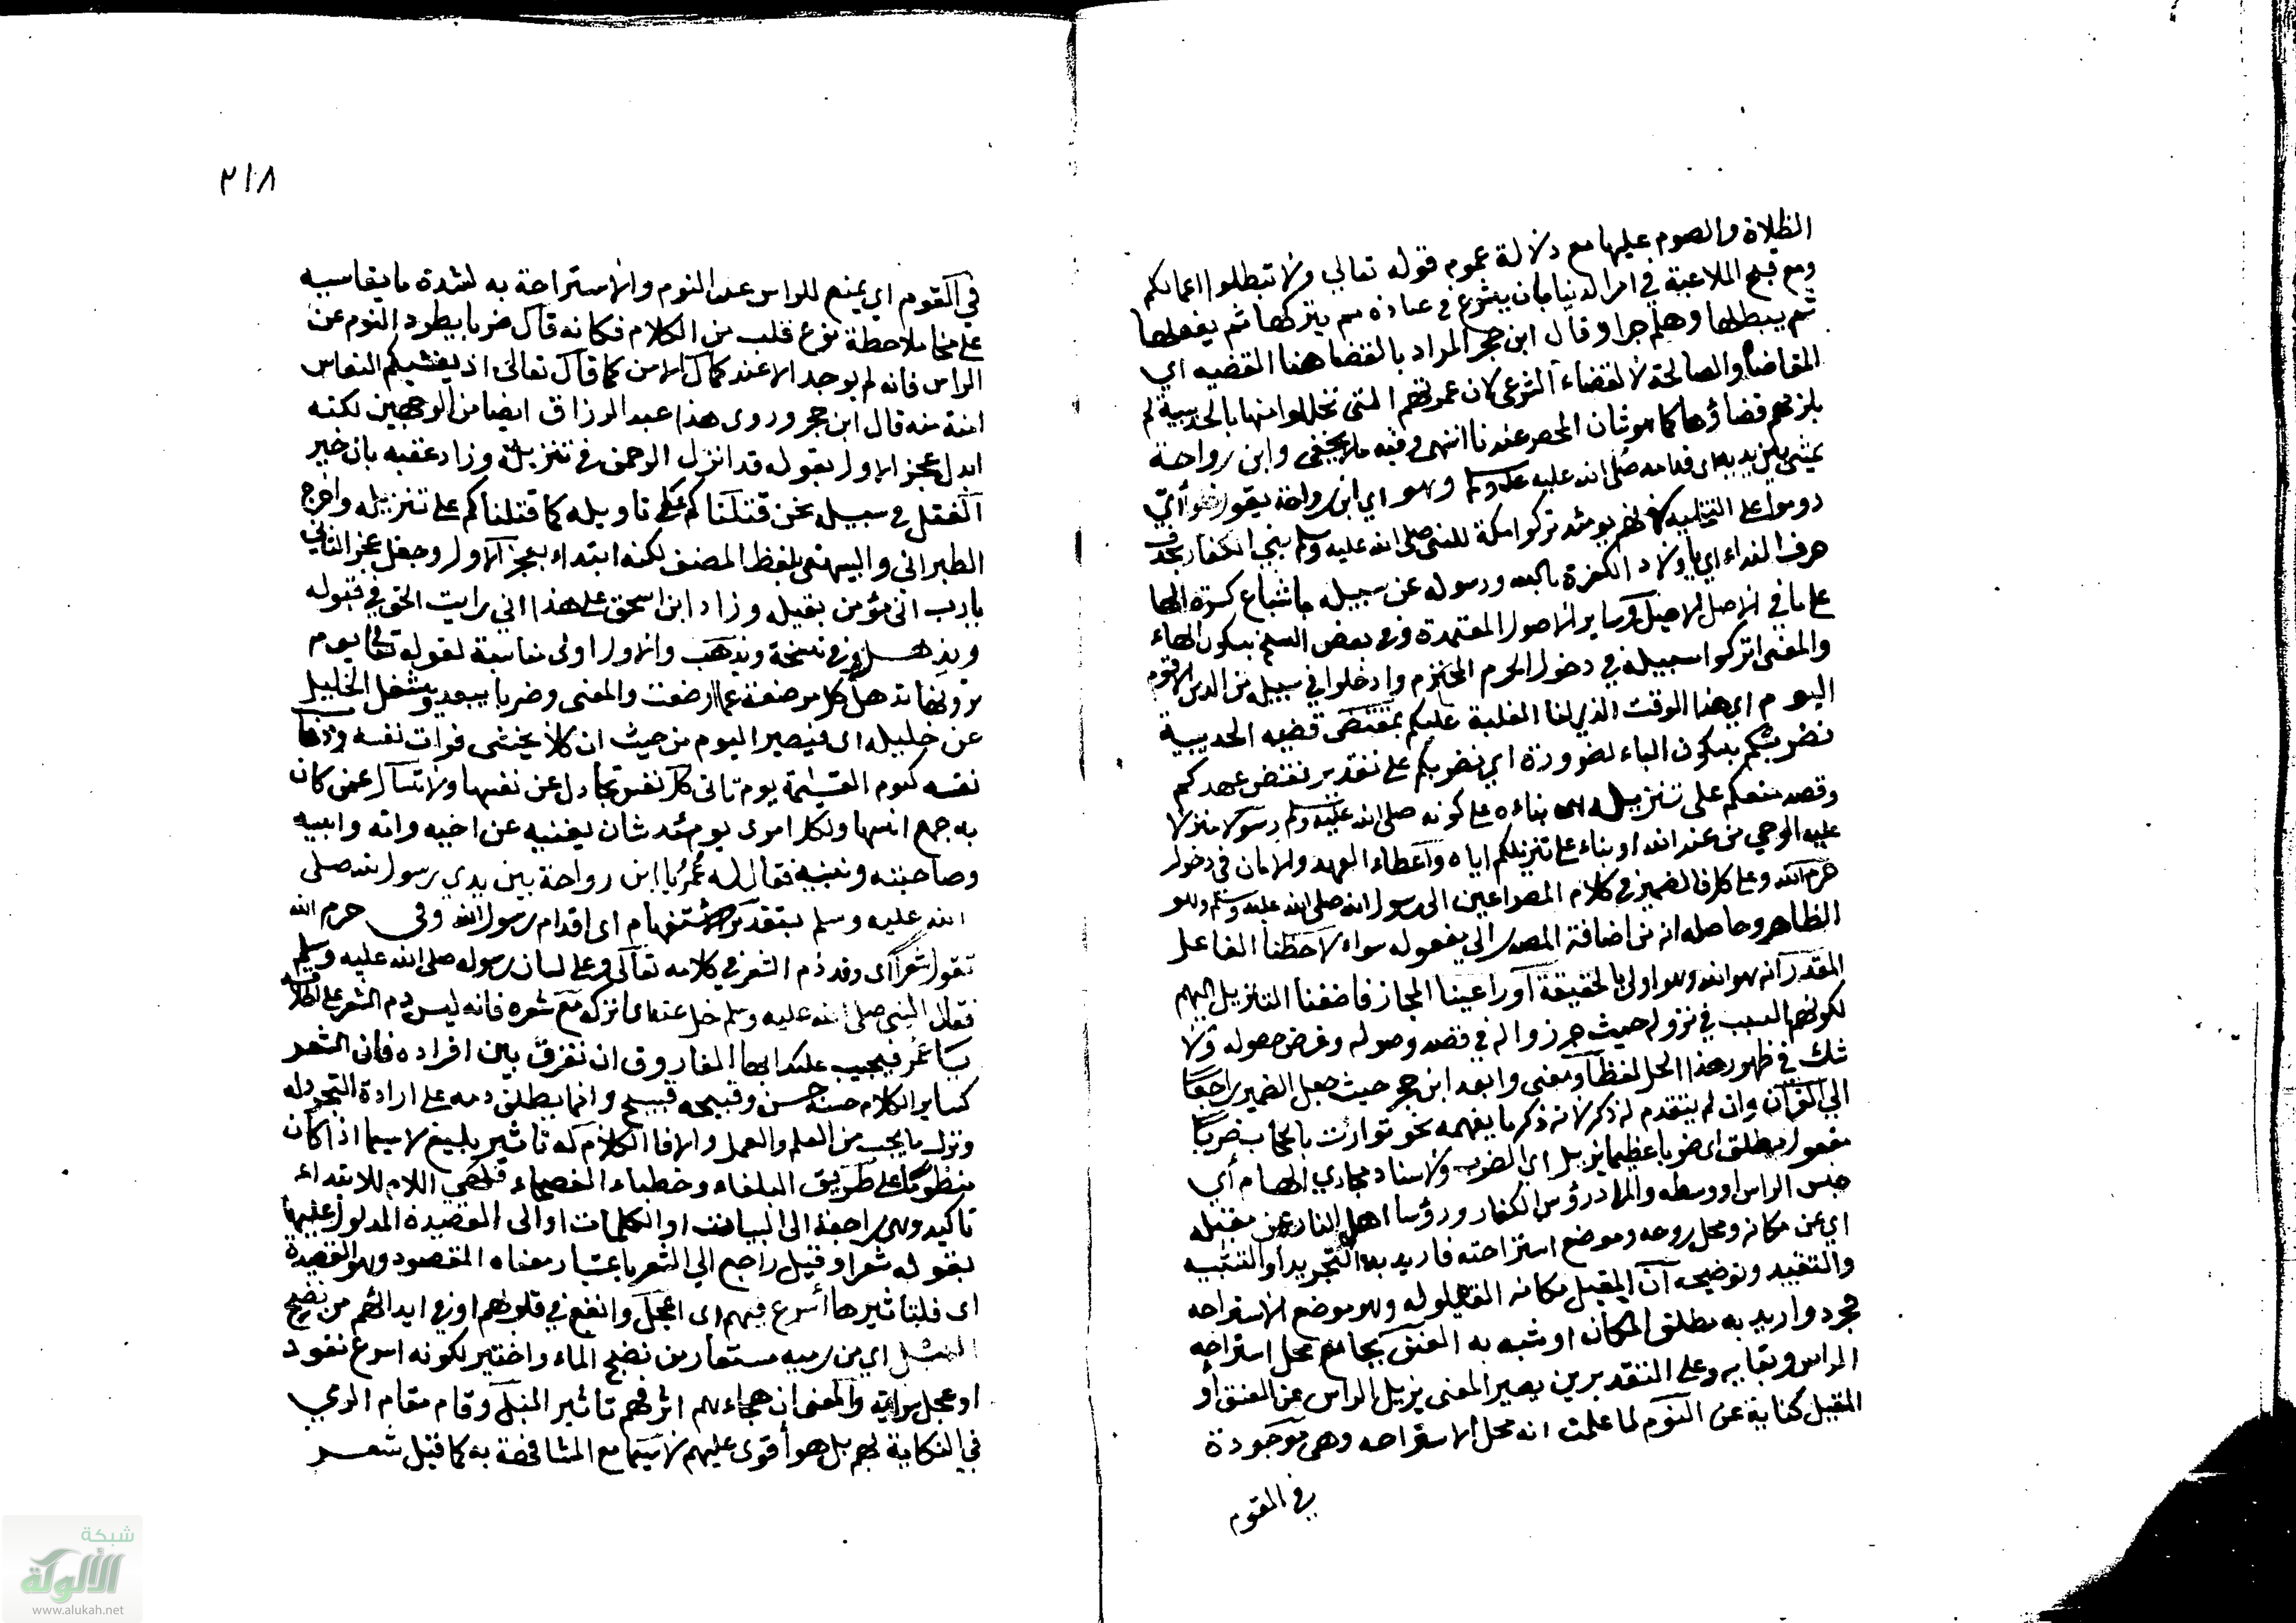 الظلاة والصوم عليها مع دلالة عموم قوله تعالى ولا تبطلوا اعمالكم
ومع قبح الملاعبة في امر الدنيا بان يشرع في عبادة ثم يتركها ثم يفعلها
ثم يبطلها وهلم جرا وقال ابن حجر المراد بالقضا هنا القضيه اي
المقاضاة والصالحة لا القضاء الشرعي لان عمرتهم التي تحللوا منها بالحديبية لم
يلزمهم قضاؤها كما هو شان الحصر عندنا انتهى وفيه ما لا يخفى وابن رواحة
يمشي بين يديه اي قدامه صلى الله عليه وسلم وهو اي ابن رواحة يقول خلوا أي
دوموا على التخلية لانهم يومئذ تركوا مكة للنبي صلى الله عليه وسلم بني الكفار بحذف
حرف النداء اي يا اولاد الكفرة بالله ورسوله عن سبيله باشباع كسرة الها
على ما في الاصل الاصيل وساير الاصول المعتمدة وفي بعض النسخ بسكون الهاء
والمعنى اتركوا سبيله في دخول الحرم المحترم وادخلوا في سبيله من الدين الاقوم
اليوم اي هذا الوقت الذي لنا الغلبة عليكم بمقتضى قضيه الحديبية
نضربكم بسكون الباء لضرورة اي نضربكم على تقدير نقض عهدكم
وقصد منعكم على تنزيله اى بناءه على كونه صلى الله عليه وسلم رسولا منزلا
عليه الوحي من عند الله او بناء على تنزيلكم اياه واعطاء العهد والامان في دخول
حرم الله وعلى كل فالضمير في كلام المصراعين الى رسول الله صلى الله عليه وسلم وهو
الظاهر وحاصله انه من اضافة المصدر الى مفعوله سواء لاحظنا الفاعل
المقدر انه هو الله وهو اولى بالحقيقة أو راعينا المجاز فاضفنا التنزيل اليهم
لكونهم السبب في نزوله حيث في قصد وصوله وغرض حصوله ولا
شك في ظهور هذا الحل لفظا ومعنى وابعد ابن حجر حيث جعل الضمير راجعا
الى القرآن وان لم يتقدم له ذكر لانه ذكر ما يفهمه نحو توارت بالحجاب ضربا
مفعول مطلق اى ضربا عظيما يزيل اي الضرب والاسناد مجازي الهام أي
جنس الراس او وسطه والمراد رؤس الكفار ورؤسا اهل النار عن مقيله
اي عن مكانه ومحل روحه وموضع استراحته فاريد به التجريد او التشبيه
والتقييد وتوضيحه أن المقيل مكانه القيلوله وهو موضع الاستراحه
مجرد واريد به مطلق المكان او شبه به العنق بجامع محل استراحه
الراس وبقايه وعلى التقديرين يصير المعنى يزيل الراس عن العنق أو
المقيل كناية عن النوم لما علمت انه محل الاستراحه وهى موجودة
في القوم
٢١٨
في القوم اي يمنع الراس عن النوم والاستراحة به لشدة ما يقاسيه
على ملاحظة نوع قلب من الكلام فكانه قال ضربا يطرد النوم عن
الراس فانه لم يوجد الا عند كمال الامن كما قال تعالى اذ يغشيكم النعاس
امنة منه قال ابن حجر وروى هذا عبد الرزاق ايضا من الوجهين لكنه
ابدل عجز الاول بقوله قد انزل الرحمن في تنزيله وزاد عقبه بان خير
القتل في سبيله نحن قتلناكم على تاويله كما قتلناكم على تنزيله واخرج
الطبراني والبيهقي بلفظ المصنف لكنه ابتداه بعجز الاول وجعل عجز الثاني
يا رب اني مؤمن بقيله وزاد ابن اسحق على هذا اني رايت الحق في قبوله
ويذهل وفي نسخة ويذهب والاول اولى مناسبة لقوله تعالى يوم
ترونها تذهل كل مرضعة عما ارضعت والمعنى وضربا يبعد ويشغل الخليل
عن خليله اى فيصير اليوم من حيث ان كلا يخشى فوات نفسه
نفسه كيوم القيمة يوم تاتى كل نفس تجادل عن نفسها ولا تسأل عن كان
به جمع انسها ولكل امرئ يومئذ شان يغنيه عن اخيه وامه وابيه
وصاحبته وبنيه فقال له عمر يا ابن رواحة بين يدي رسول الله صلى
الله عليه وسلم بتقدير الاستفهام اى اقدام رسول الله وفى حرم الله
تقول شعرا اى وقد ذم الشعر في كلامه تعالى وعلى لسان رسوله صلى الله عليه وسلم
فقال النبي صلى الله عليه وسلم خل عنه اى اتركه مع شعره فانه ليس ذم الشعر على اطلاقه
يا عمر فيجب عليك ايها الفاروق ان تفرق بين افراده فان الشعر
كساير الكلام حسنه حسن وقبيحه قبيح وانما يطلق ذمه على ارادة التجرد له
وترك ما يجب من العلم والعمل والا فالكلام له تاثير بليغ لا سيما اذا كان
منظوما على طريق البلغاء وخطباء الفصحاء فلهي اللام للابتداء
تاكيد وهى راجعة الى البيات او الكلمات او الى القصيدة المدلول عليها
بقوله شعرا وقيل راجع الي الشعر باعتبار معناه المقصود وهو القصيدة
اى فلتاثيرها أسرع فيهم اى اعجل وانفع في قلوبهم او في ايدائهم من نضح
النبل اي من رميه مستعار من نضح الماء واختير لكونه اسرع نفوذ
او عجل سراية والمعنى ان هجاءهم اثر فيهم تاثير النبل وقام مقام الرمي
في النكاية لهم بل هو أقوى عليهم لا سيما مع المشافهة به كما قيل شعر
شبكة
الألوكة
www.alukah.net